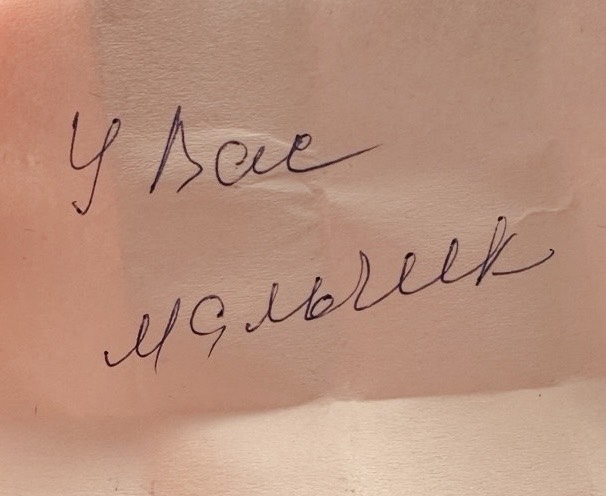 У Вас
мальчик